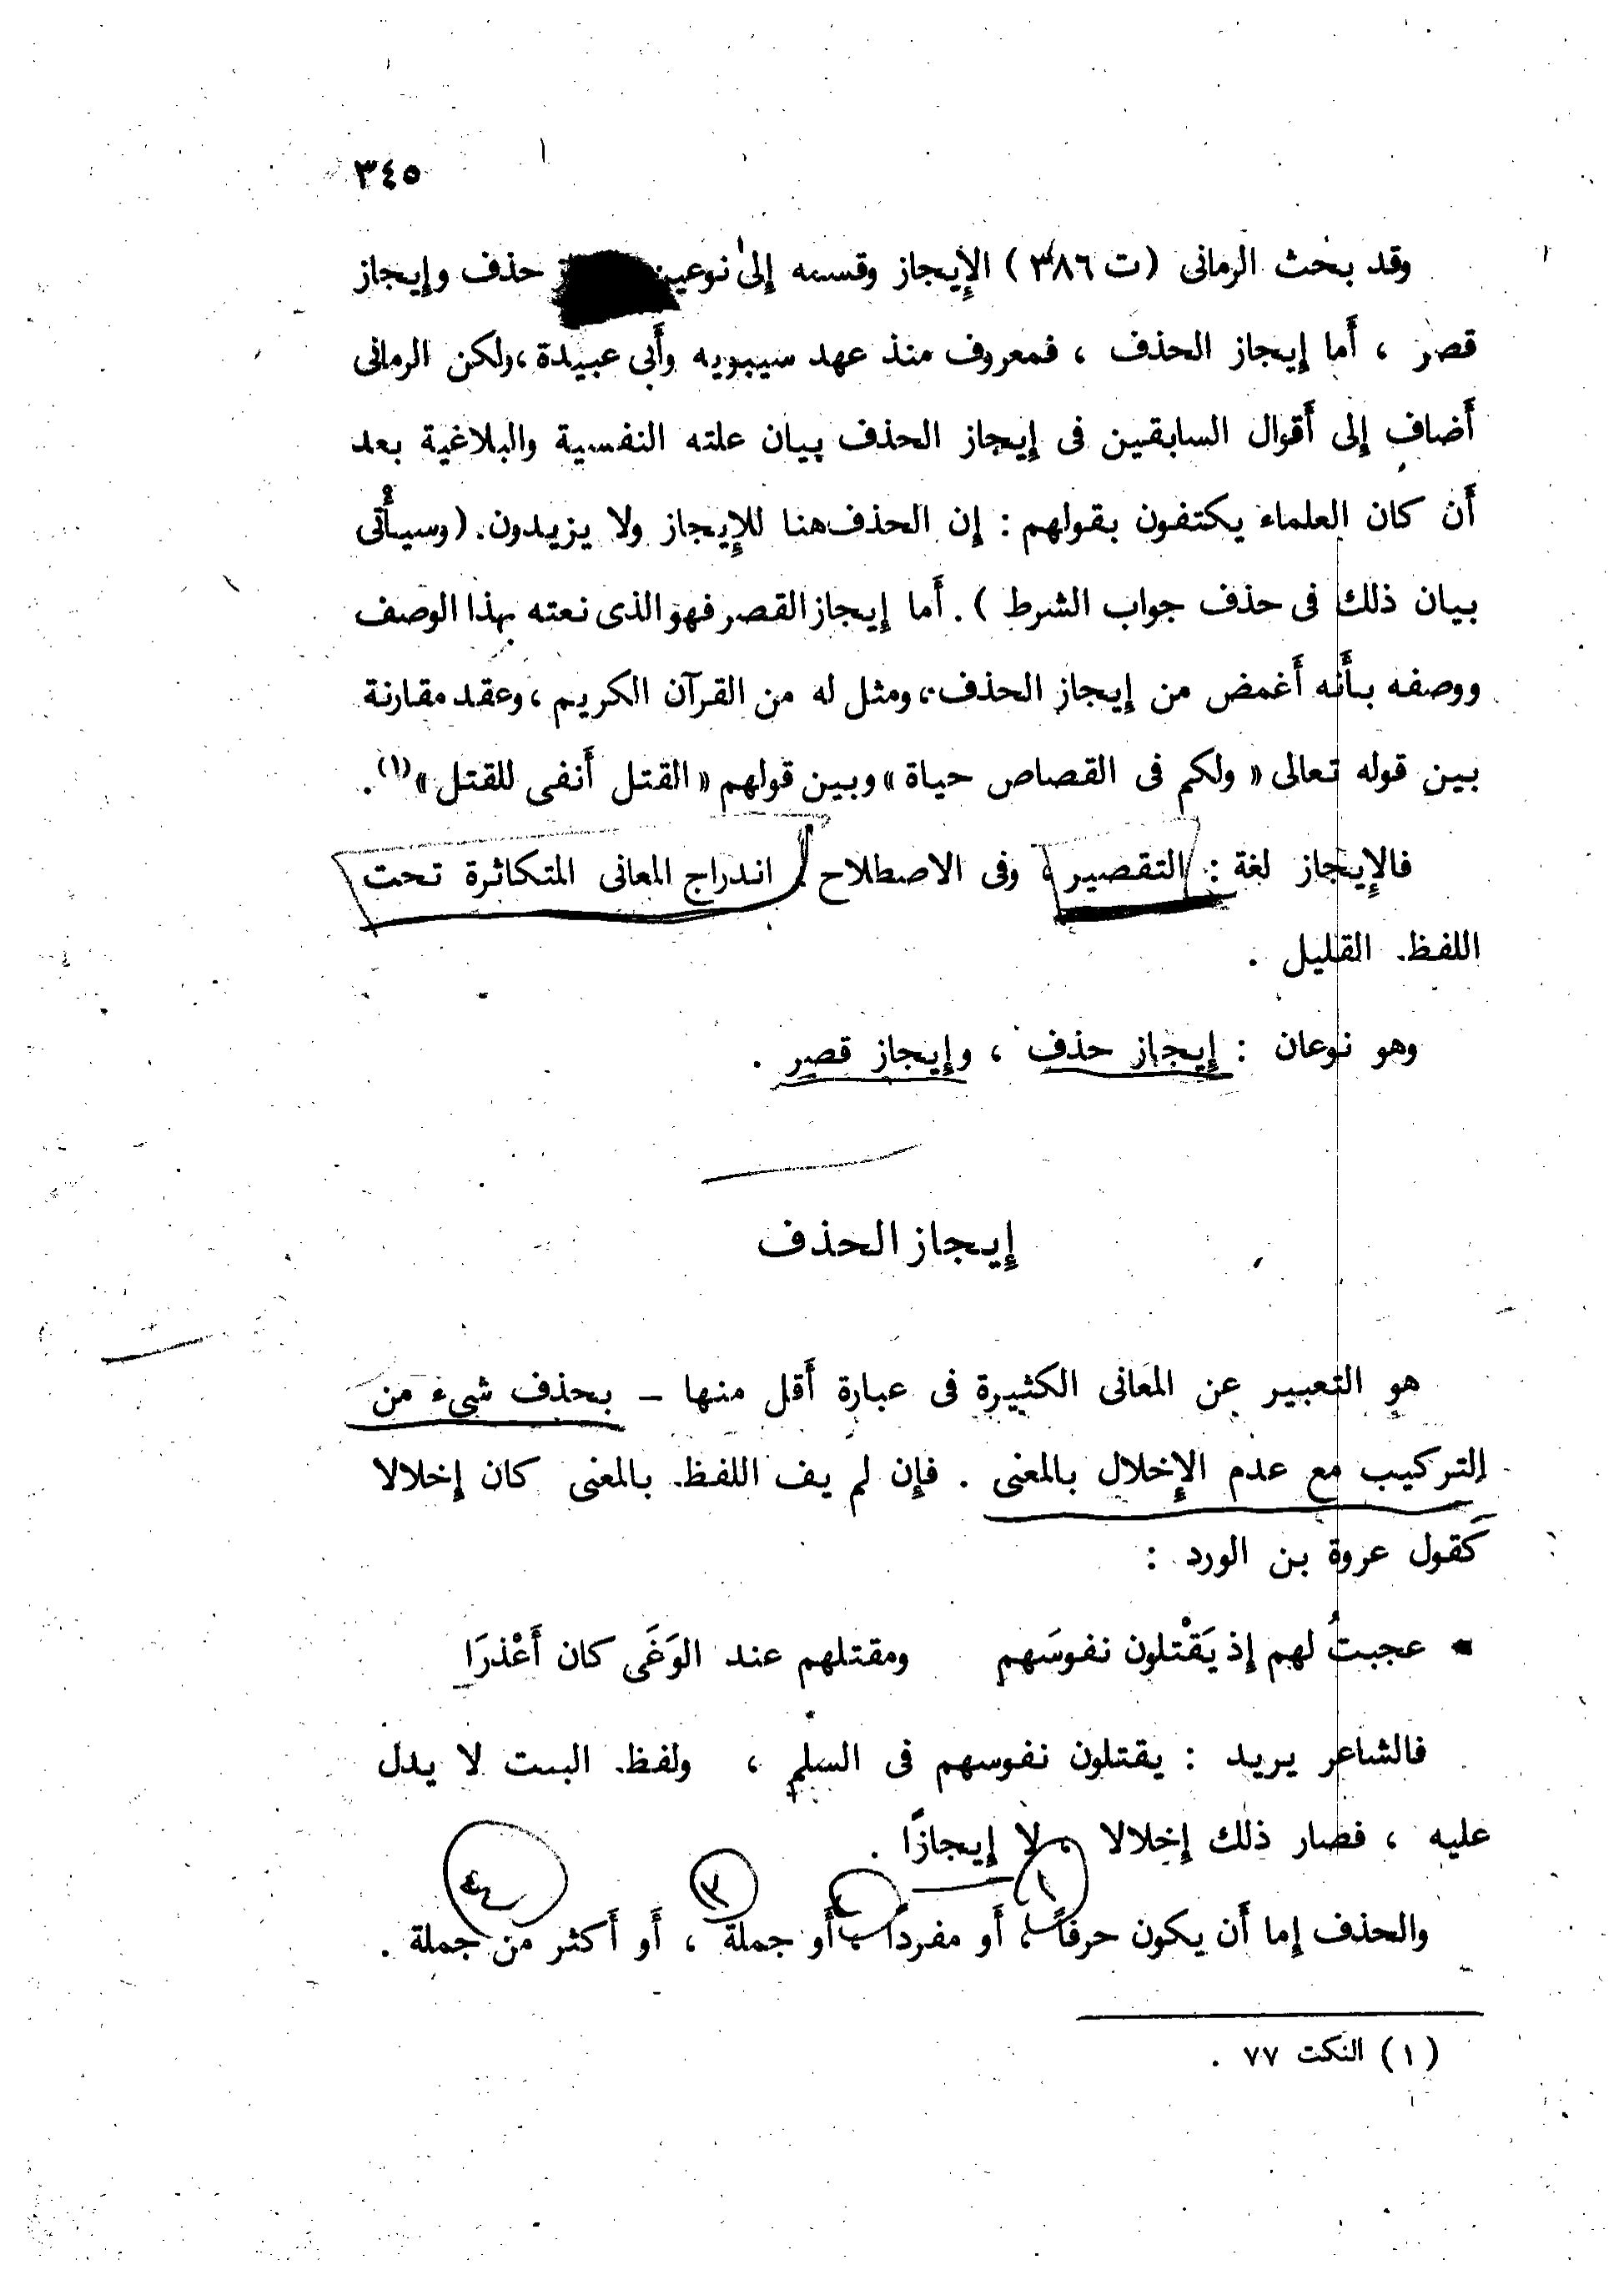 ٣٤٥
وقد بحث الرمانى (ت ٣٨٦) الإيجاز وقسمه إلى نوعين حذف وإيجاز
قصر ، أما إيجاز الحذف ، فمعروف منذ عهد سيبويه وأبى عبيدة ، ولكن الرمانى
أضاف إلى أقوال السابقين فى إيجاز الحذف بيان علته النفسية والبلاغية بعد
أن كان العلماء يكتفون بقولهم : إن الحذف هنا للإيجاز ولا يزيدون. (وسيأتى
بيان ذلك فى حذف جواب الشرط ) . أما إيجاز القصر فهو الذى نعته بهذا الوصف
ووصفه بأنه أغمض من إيجاز الحذف ، ومثل له من القرآن الكريم ، وعقد مقارنة
بين قوله تعالى « ولكم فى القصاص حياة » وبين قولهم « القتل أنفى للقتل » (١) .
فالإيجاز لغة : التقصير ، وفى الاصطلاح : اندراج المعانى المتكاثرة تحت
اللفظ القليل .
وهو نوعان : إيجاز حذف ، وإيجاز قصر .
إيجاز الحذف
هو التعبير عن المعانى الكثيرة فى عبارة أقل منها – بحذف شىء من
التركيب مع عدم الإخلال بالمعنى . فإن لم يف اللفظ بالمعنى كان إخلالا
كقول عروة بن الورد :
عجبتُ لهم إذ يَقْتلون نفوسَهم ومقتلهم عند الوَغَى كان أَعْذرَا
فالشاعر يريد : يقتلون نفوسهم فى السلم ، ولفظ البيت لا يدل
عليه ، فصار ذلك إخلالا ، لا إيجازًا .
١ ٢ ٣ ٤
والحذف إما أن يكون حرفاً ، أو مفرداً ، أو جملة ، أو أكثر من جملة .
(١) النكت ٧٧ .